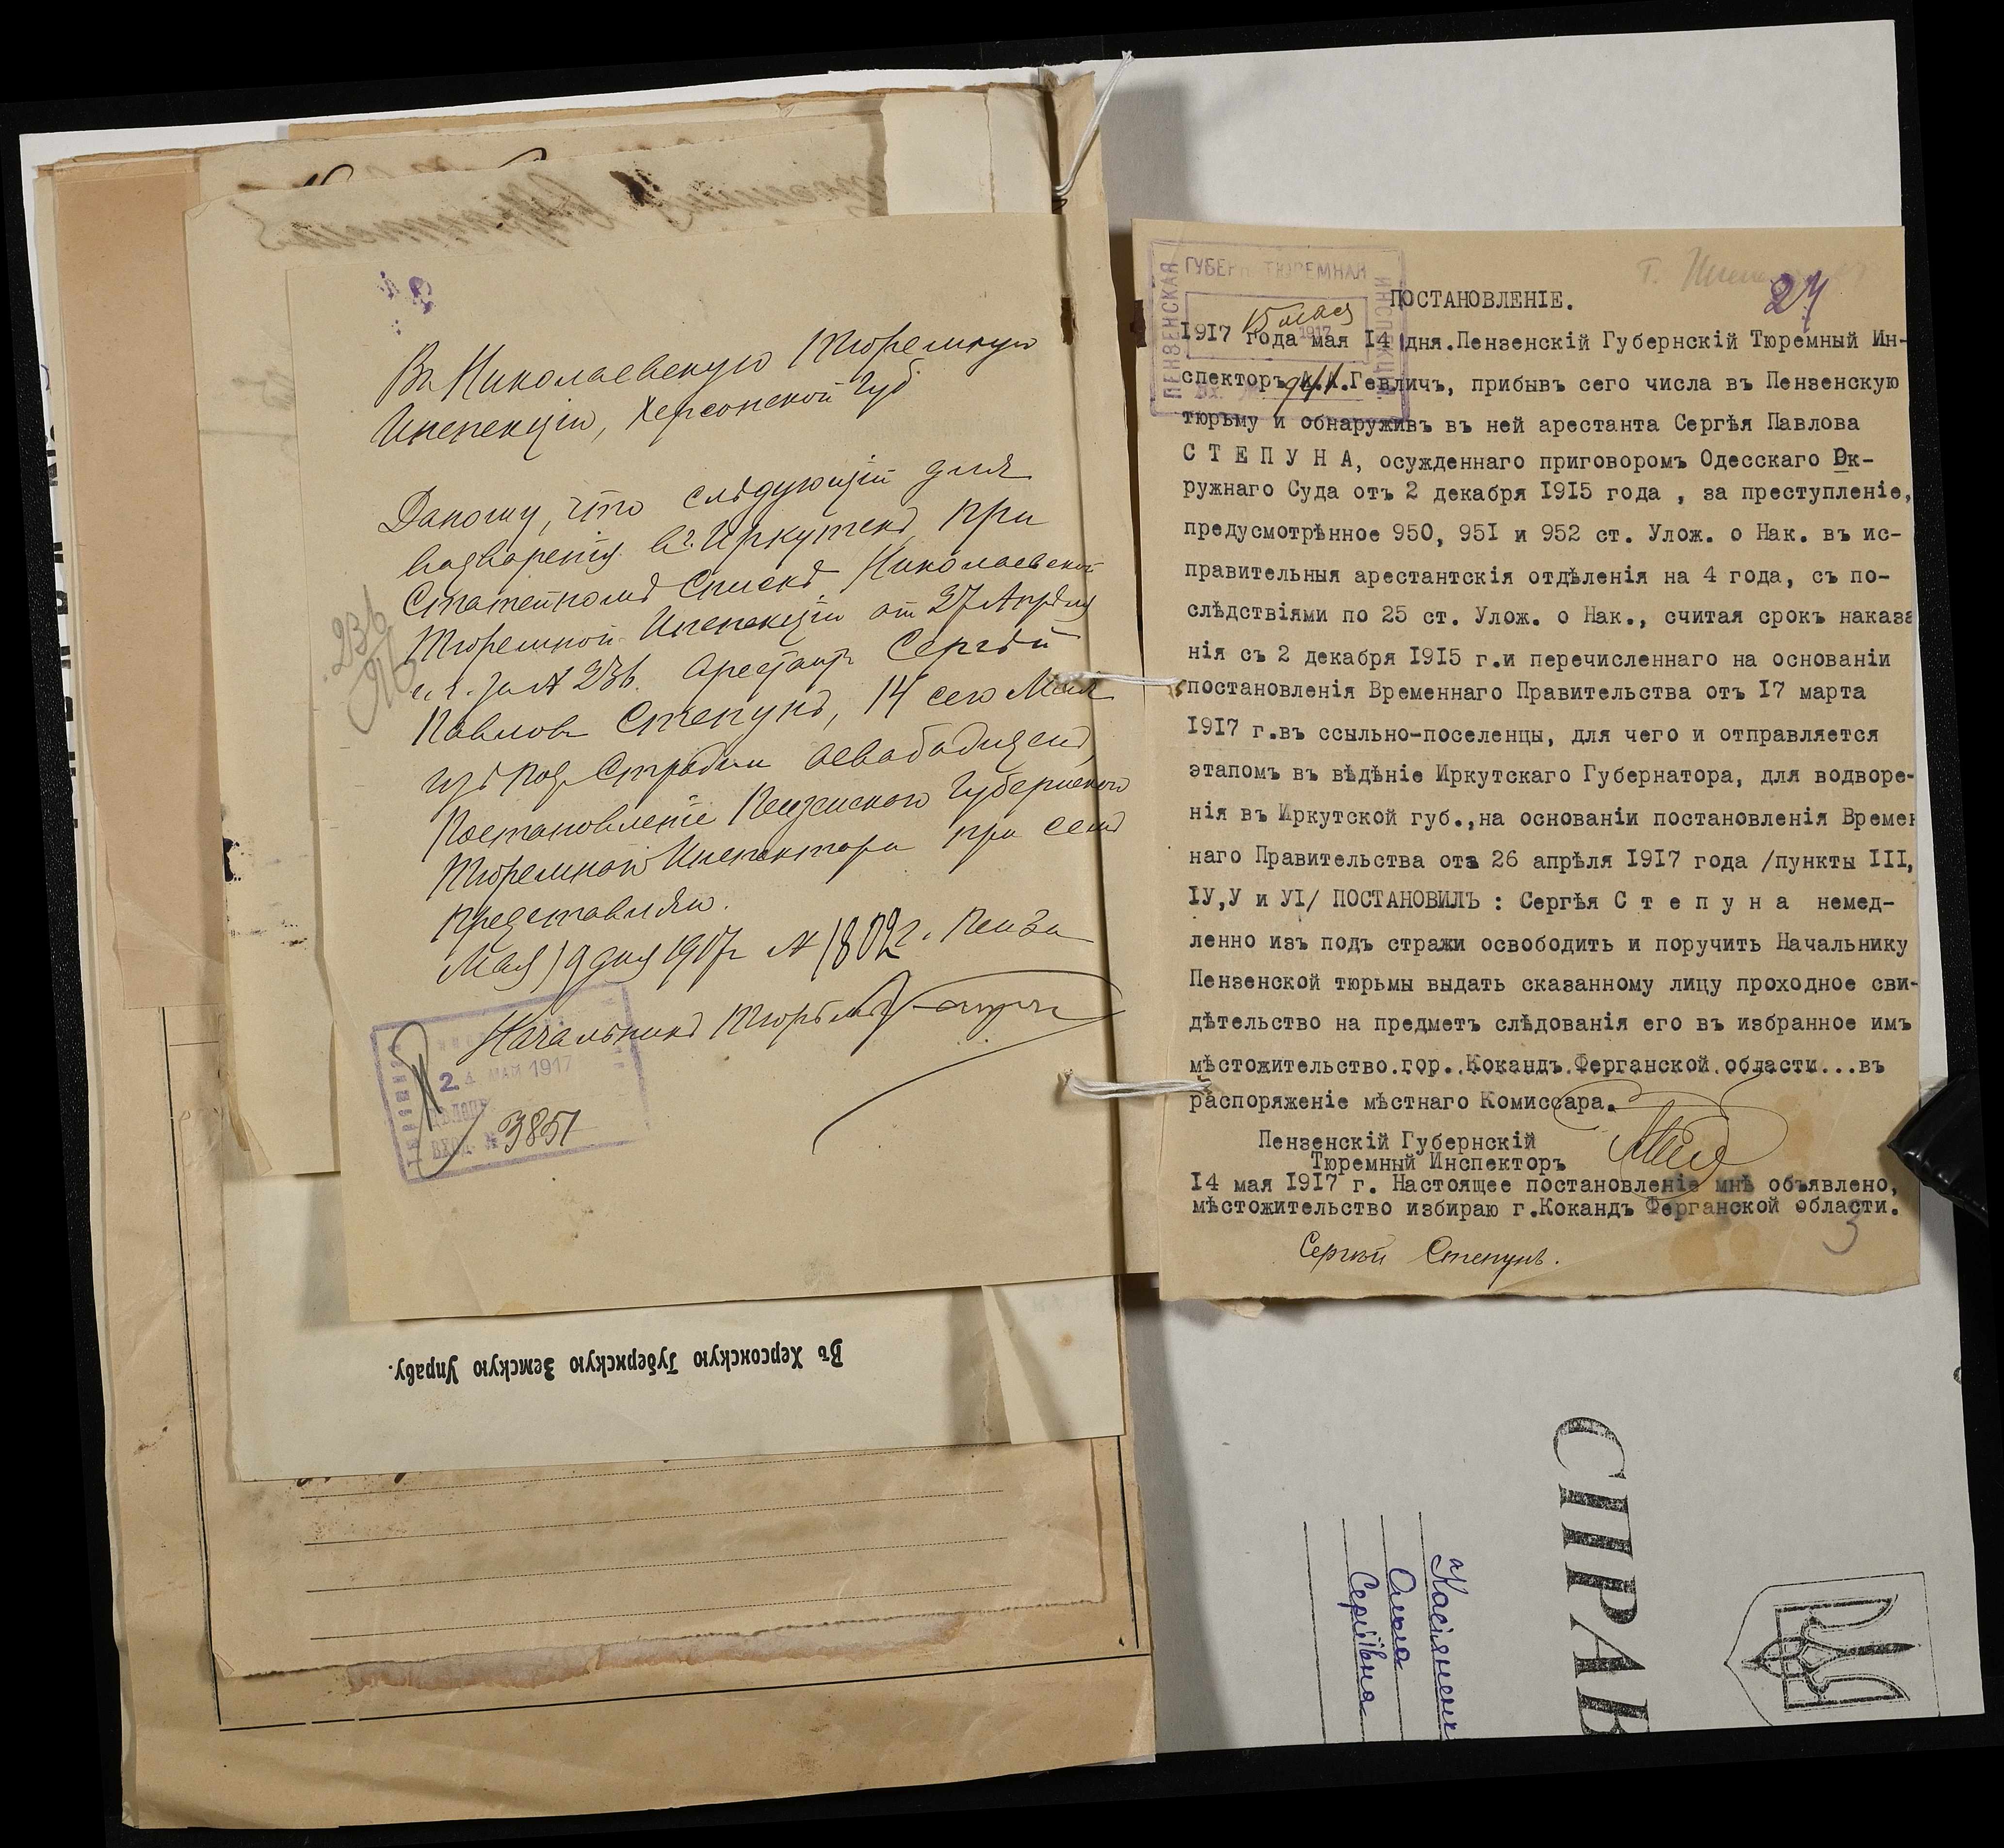 Въ Николаевскую Тюремную
Инспекцію, Херсонской Губ
Доношу, что слѣдующій для
водворенія въ г. Иркутскъ, при
Статейномъ Спискѣ Николаевской
Тюремной Инспекціи от 27 Апрѣля
с.г. за № 236. арестантъ Сергѣй
Павловъ Степунъ, 14 сего Мая
изъ под Стражи освобожденъ
Постановленіе Пензенскаго Губернскаго
Тюремнаго Инспектора при семъ
представляю.
Мая 19 дня 1917 г № 1802 г. Пенза
Начальникъ Тюрьмы
236
24 МАЙ 1917
ВХОД. №
3851
Въ Херсонскую Губернскую Земскую Управу.
ПЕНЗЕНСКАЯ
ГУБЕРН. ТЮРЕМНАЯ
ИНСПЕКЦІЯ
15 мая
1917
Вх. №
941
24
ПОСТАНОВЛЕНІЕ.
1917 года мая 14 дня.Пензенскій Губернскій Тюремный Ин-
спекторъ А.А.Гевличъ, прибывъ сего числа въ Пензенскую
тюрьму и обнаруживъ въ ней арестанта Сергѣя Павлова
С Т Е П У Н А, осужденнаго приговоромъ Одесскаго Ок-
ружнаго Суда отъ 2 декабря 1915 года , за преступленіе,
предусмотрѣнное 950, 951 и 952 ст. Улож. о Нак. въ ис-
правительныя арестантскія отдѣленія на 4 года, съ по-
слѣдствіями по 25 ст. Улож. о Нак., считая срокъ наказа
нія съ 2 декабря 1915 г.и перечисленнаго на основаніи
постановленія Временнаго Правительства отъ 17 марта
1917 г.въ ссыльно-поселенцы, для чего и отправляется
этапомъ въ вѣдѣніе Иркутскаго Губернатора, для водворе-
нія въ Иркутской губ.,на основаніи постановленія Времен
наго Правительства отъ 26 апрѣля 1917 года /пункты III,
IУ,У и УI/ ПОСТАНОВИЛЪ : Сергѣя С т е п у н а немед-
ленно изъ подъ стражи освободить и поручить Начальнику
Пензенской тюрьмы выдать сказанному лицу проходное сви-
дѣтельство на предметъ слѣдованія его въ избранное имъ
мѣстожительство.гор..Кокандъ.Ферганской.области...въ
распоряженіе мѣстнаго Комиссара.
Пензенскій Губернскій
Тюремный Инспекторъ
14 мая 1917 г. Настоящее постановленіе мнѣ объявлено,
мѣстожительство избираю г.Кокандъ Ферганской области.
3
Сергѣй Степунъ.
СПРАВ
Ольга
Сергіївна